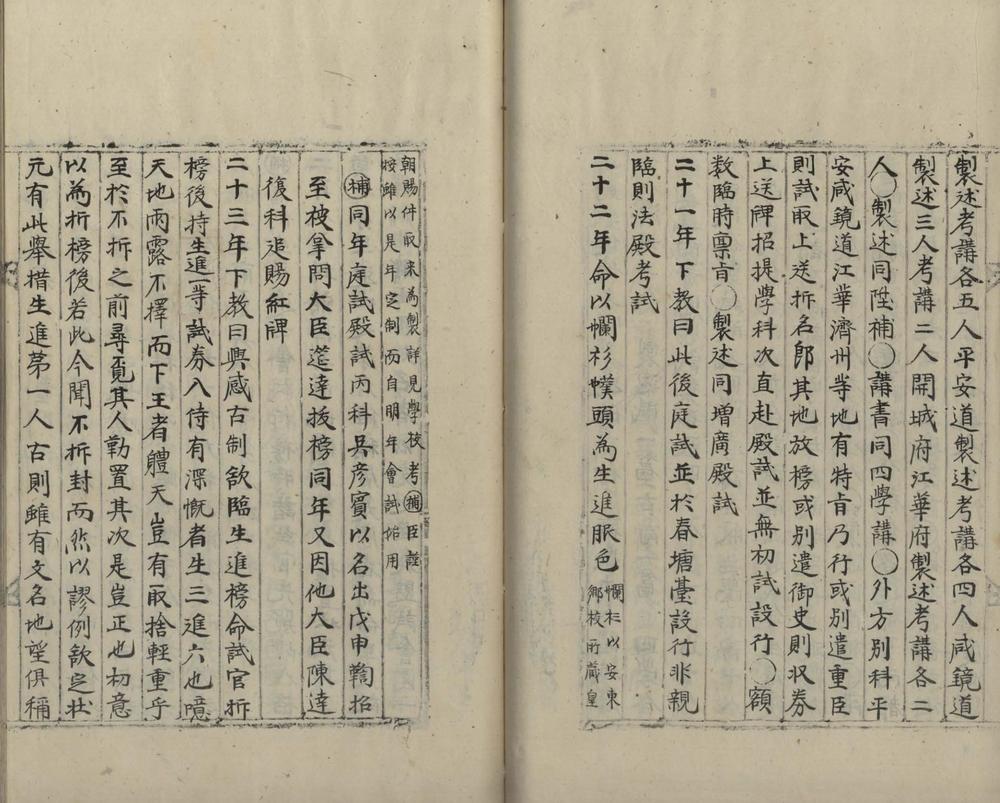 製述考講各五人平安道製述考講各四人咸鏡道
製述三人考講二人開城府江華府製述考講各二
人○製述同陞補○講書同四學講○外方別科平
安咸鏡道江華濟州等地有特旨乃行或別遣重臣
則試取上送折名郎其地放榜或別遣御史則収券
上送禆招提學科次直赴殿試並無初試設行○額
数臨時禀旨○製述同增廣殿試
二十一年下教曰此後庭試並於春塘臺設行非親
臨則法殿考試
二十二年命以襴衫幞頭為生進服色
襴衫以安東
鄉校所藏皇
朝賜件取来為製詳見學校考補臣謹
按雖以是年定制而自明年會試始用
補同年庭試殿試丙科吳彦賓以名出戊申鞫招
至被拿問大臣筵達拔榜同年又因他大臣陳達
復科追賜紅牌
二十三年下教曰興感古制欲臨生進榜命試官折
榜後持生進一等試券入侍有深慨者生三進六也噫
天地雨露不擇而下王者軆天豈有取捨輕重乎
至於不拆之前尋覓其人勒置其次是豈正也初意
以為折榜後若此今聞不拆封而然以謬例欲定壯
元有此舉措生進第一人古則雖有文名地望俱稱